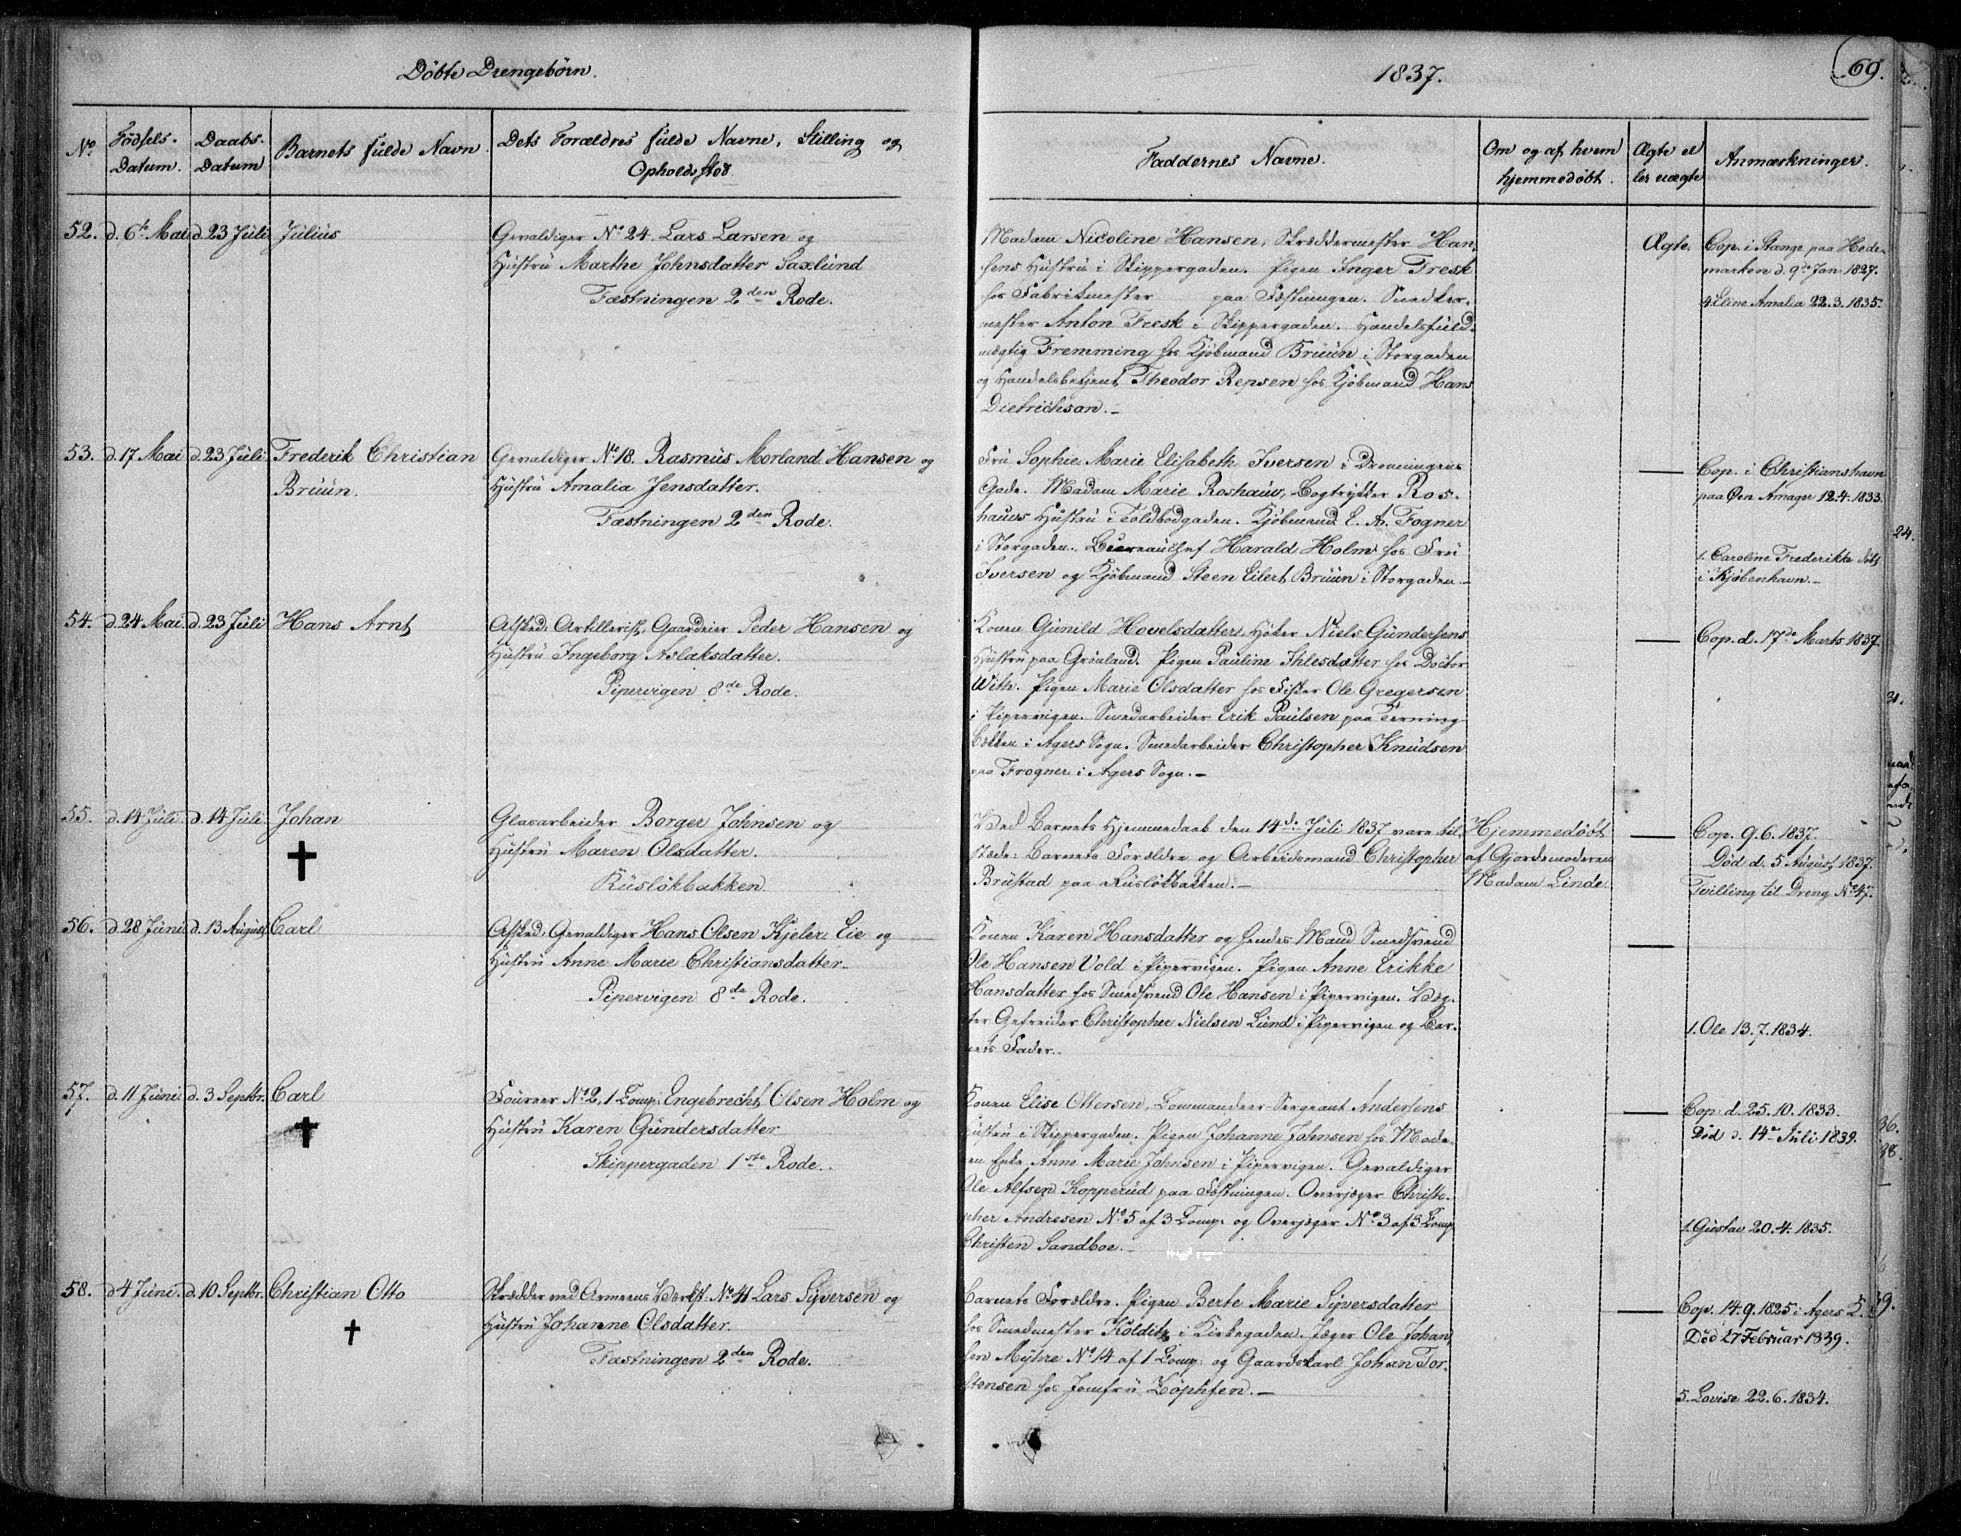 Döbte Drengebörn.
1837.
69.
No.
Födsels-
Datum.
Daabs-
Datum
Barnets fulde Navn.
Dets Forældres fulde Navne, Stilling og
Opholdssted.
Faddernes Navne.
Om og af hvem
hjemmedöbt.
Ægte el
ler uægte
Anmærkninger.
52. d. 6te Mai d. 23 Juli Julius
Gevaldiger No 24. Lars Larsen og
Hustru Marthe Johnsdatter Saxlund
Fæstningen 2den Rode.
Madam Nicoline Hansen, Skræddermester Han-
sens Hustru i Skippergaden. Pigen Inger Fresk
hos Fabrikmester paa Fæstningen. Snedker-
mester Anton Fresk i Skippergaden. Handelsfuld-
mægtig Fremming hos Kjöbmand Bruun i Storgaden
og Handelsbetjent Theodor Repsen hos Kjöbmand Hans
Dietrichsan.-
Ægte.
Cop. i Stange paa Hede-
marken d. 9de Jan. 1827.
4. Eline Amalia 22.3.1835.
53. d. 17 Mai d. 23 Juli Frederik Christian
Bruun.
Gevaldiger No 18. Rasmus Morland Hansen og
Hustru Amalia Jensdatter.
Fæstningen 2den Rode.
Fru Sophie Marie Elisabeth Iversen i Dronningens
Gade. Madam Marie Roshauw, Bogtrykker Ros-
hauws Hustru i Toldbodgaden. Kjöbmand E. A. Fogner
i Storgaden. Bureauchef Harald Holm hos Fru
Iversen og Kjöbmand Steen Eilert Bruun i Storgaden.-
Cop. i Christianshavn
paa Öen Amager 12.4.1833.
1. Caroline Frederikke döbt
i Kjöbenhavn.-
54. d. 24 Mai d. 23 Juli Hans Arnt
Afsked. Artillerist, Gaardeier Peder Hansen og
Hustru Ingeborg Aslaksdatter.
Pipervigen 8de Rode.
Konen Gunild Hovelsdatter, Höker Niels Gundersens
Hustru paa Grönland. Pigen Pauline Ihlesdatter hos Doctor
With. Pigen Marie Olsdatter hos Fisker Ole Gregersen
i Pipervigen. Smedarbeider Erik Paulsen paa Terning-
bækken i Agers Sogn. Smedarbeider Christopher Knudsen
paa Frogner i Agers Sogn.-
Cop. d. 17de Marts 1837.
55. d. 14 Juli d. 14 Juli Johan
Glasarbeider Borger Johnsen og
Hustru Maren Olsdatter.
Rüslökbakken
Ved Barnets Hjemmedaab den 14de Juli 1837 vare til-
stæde: Barnets Forældre og Arbeidsmand Christopher
Brustad paa Ruslökbakken.-
Hjemmedöbt
af Gjordemoderen
Madam Linde.
Cop. 9.6.1837.
Död d. 5 August 1837.
Tvilling til Dreng No 47.
56. d. 28 Juni d. 13 August Carl
Afsked. Gevaldiger Hans Olsen Kjeler. Eie og
Hustru Anne Marie Christiansdatter.
Pipervigen 8de Rode.
Konen Karen Hansdatter og hendes Mand Smedsvend
Ole Hansen Vold i Pipervigen. Pigen Anne Erikke
Hansdatter hos Smedsvend Ole Hansen i Pipervigen. Væg-
ter Gefreider Christopher Nielsen Lund i Pipervigen og Bar-
nets Fader.
1. Ole 13.7.1834.
57. d. 11 Juni d. 3 Septbr. Carl
Foureer No 2, 1 Comp. Engebrecht Olsen Holm og
Hustru Karen Gundersdatter
Skippergaden 1ste Rode.
Konen Elise Ottersen, Commandeer-Sergeant Andersens
Hustru i Skippergaden. Pigen Johanne Johnsen hos Mad-
en Enke Anne Marie Johnsen i Pipervigen. Gevaldiger
Ole Alfsen Kopperud paa Fæstningen. Overjæger Christo-
pher Andresen No 5 af 3 Comp. og Overjæger No 3 af 3 Comp.
Christen Sandboe.
Cop. d. 25.10.1833.
Död d. 14de Juli 1839.
1. Gustav 20.4.1835.
58. d. 4 Juni. d. 10 Septbr. Christian Otto
Skrædder ved Armeens Værkst. No 41 Lars Syversen og
Hustru Johanne Olsdatter.
Fæstningen 2den Rode.
Barnets Forældre. Pigen Berte Marie Syversdatter
hos Smedmester Kolditz i Kirkegaden. Jæger Ole Johan-
sen Myhre No 14 af 1 Comp. og Gaardskarl Johan Tor-
stensen hos Jomfru Zöphfen.-
Cop. 14.9.1825 i Agers S.
Död 27 Februar 1839.
5. Lovise 22.6.1834.
24.
31.
36.
38.
39.